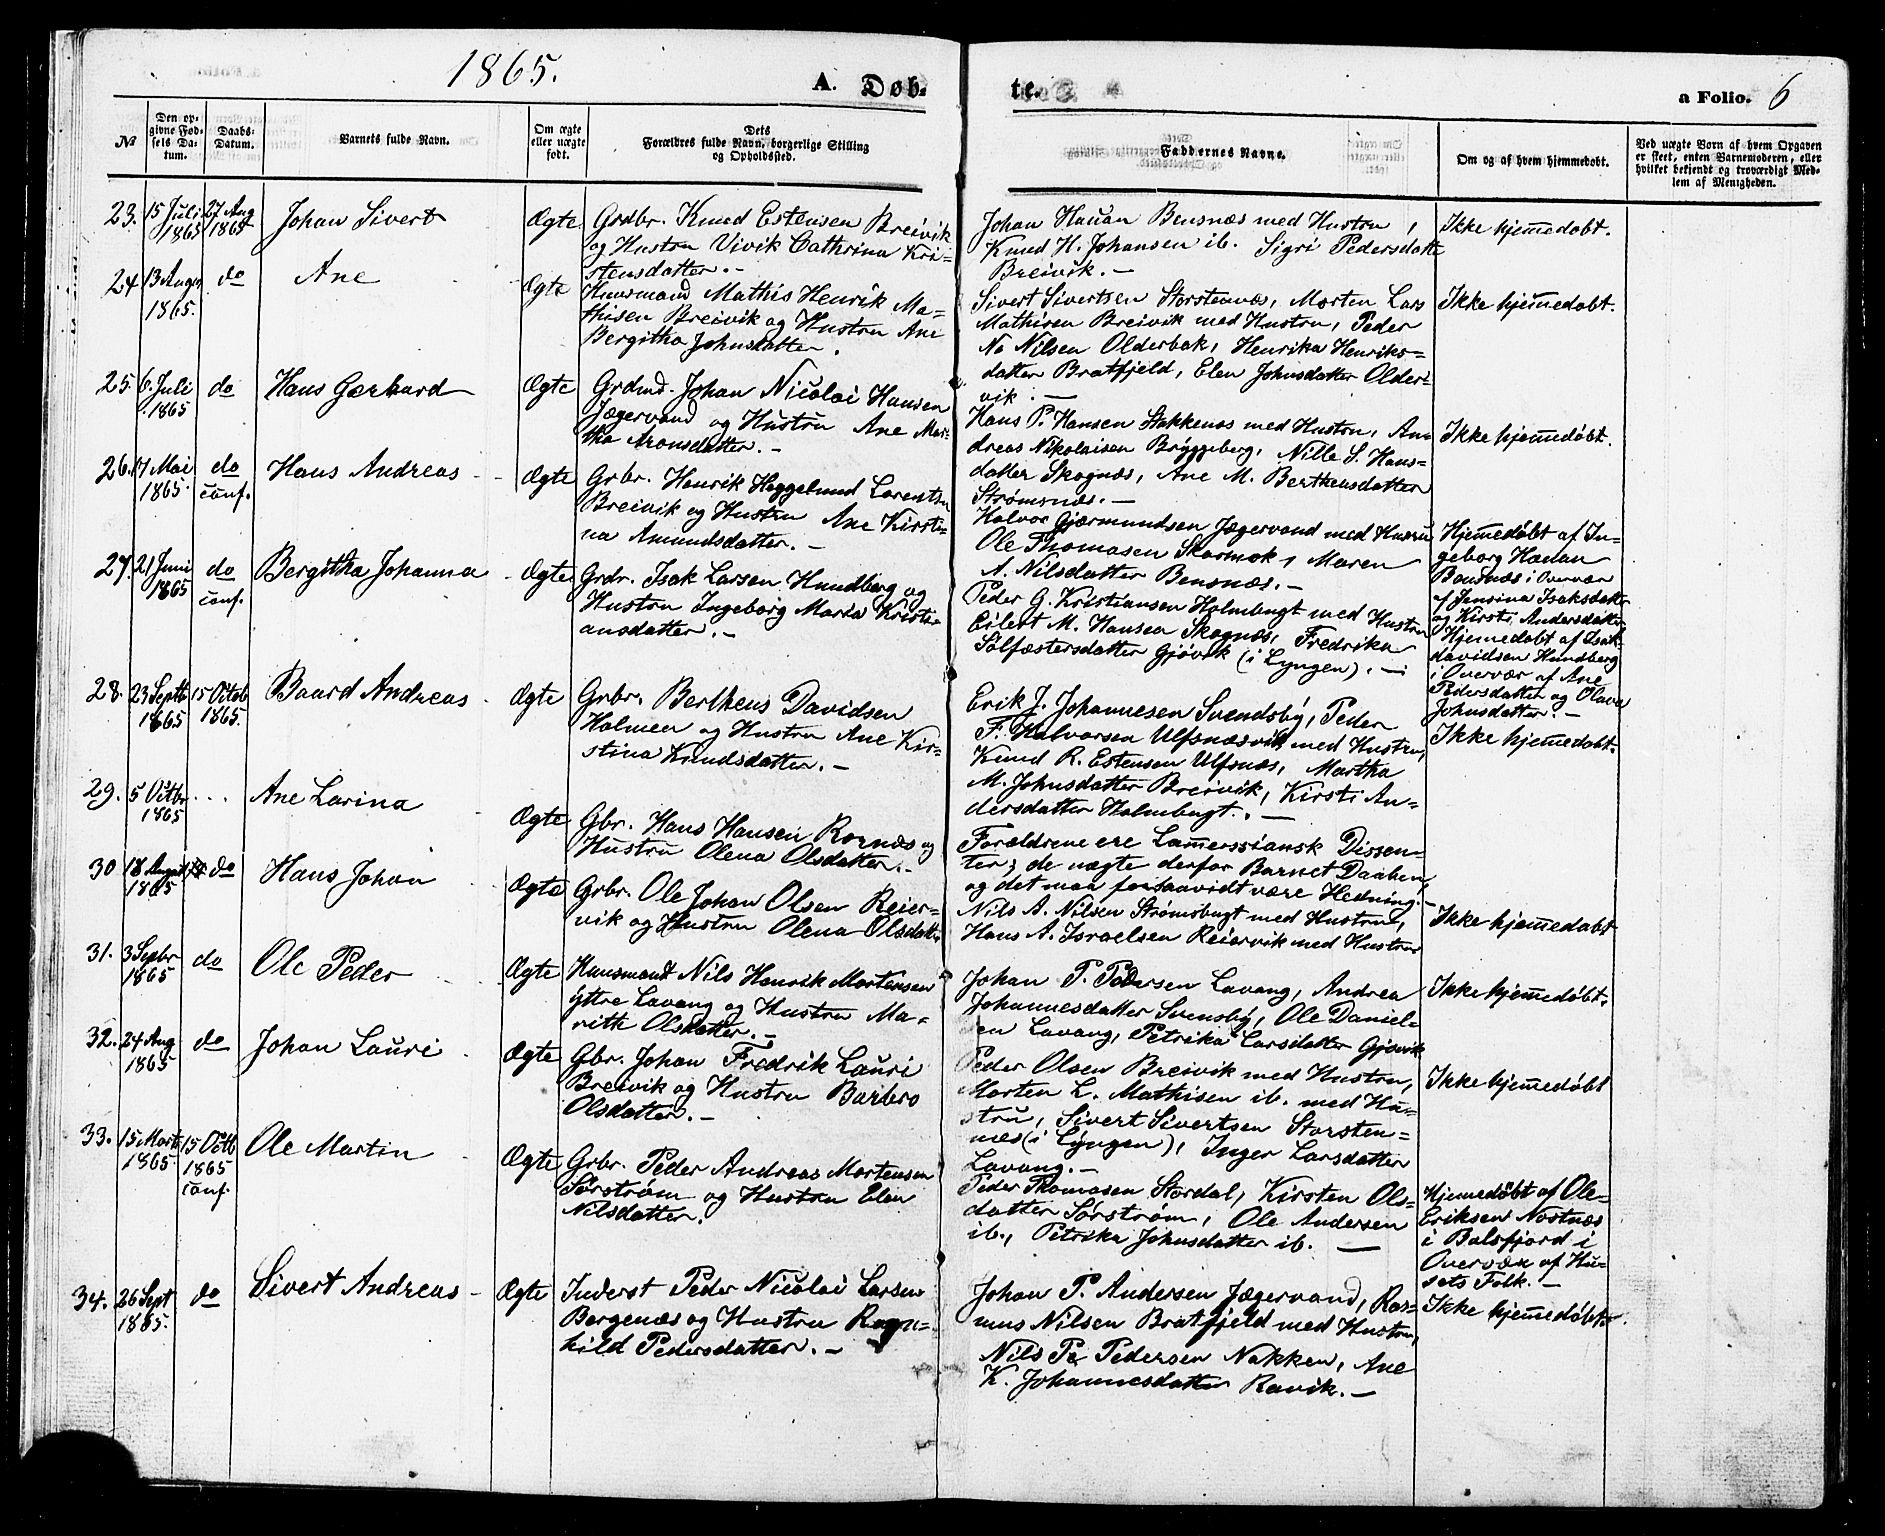 1865.
A. Døb-
te.
a Folio. 6
№
Den op-
givne Fød-
sels Da-
tum.
Daabs-
Datum.
Barnets fulde Navn.
Om ægte
eller uægte
født.
Dets
Forældres fulde Navn, borgerlige Stilling
og Opholdssted.
Faddernes Navne.
Om og af hvem hjemmedøbt.
Ved uægte Børn af hvem Opgaven
er skeet, enten Barnemoderen, eller
hvilket bekjendt og troværdigt Med-
lem af Menigheden.
23.
15 Juli
1865
27 Aug
1865
Johan Sivert
Ægte
Grdbr. Knud Estensen Breivik
og Hustru Vivik Cathrina Kri-
stensdatter. -
Johan Hauan Bensnæs med Hustru,
Knud H. Johansen ib. Sigri Pedersdatte
Breivik. -
Ikke hjemedøbt.
24
13 Augs
1865.
do
Ane
Ægte
Huusmand Mathis Henrik Ma-
thisen Breivik og Hustru Ane
Bergitha Johnsdatter.
Sivert Sivertsen Storstennæs, Morten Lars
Mathisen Breivik med Hustru, Peder
No Nilsen Olderbak, Henrika Henriks-
datter Bratfjeld, Elen Johnsdatter Older-
vik. -
Ikke hjemedøbt.
25.
6. Juli
1865
do
Hans Gerhard
Ægte
Grdmd. Johan Nicolai Hansen
Jægervand og Hustru Ane Mar-
tha Aronsdatter. -
Hans P. Hansen Stakkenæs med Hustru, An-
dreas Nikolaisen Bryggeberg, Nille S. Hans-
datter Skognæs, Ane M. Bertheusdatter
Strømsnæs. -
Ikke hjemedøbt.
26.
17 Mai
1865.
do
conf.
Hans Andreas
Ægte
Grbr. Henrik Heggelund Lorents
Breivik og Hustru Ane Kirsti-
na Amundsdatter. -
Halvor Gjærmundsen Jægervand med Hustru
Ole Thomasen Skarmok, Maren
A. Nilsdatter Bensnæs. -
Hjemedøbt af In-
geborg Hauan
Bensnæs i Overvær
af Jensina Isaksdatter
og Kirsti Andersdatter
27.
21 Juni
1865
do
conf.
Bergitha Johanna
Ægte
Grdr. Isak Larsen Hundberg og
Hustru Ingeborg Maria Kristi-
ansdatter. -
Peder G. Kristiansen Holmbugt med Hustru
Eilert M. Hansen Skognæs, Fredrika
Sølfæstersdatter Gjøvik (i Lyngen). -
Hjemedøbt af Isak
davidsen Hundberg
i Overvær af Ane
Pedersdatter og Olava
Johnsdatter. -
28.
23 Septb
1865
15 Octob
1865.
Baard Andreas
Ægte
Grbr. Bertheus Davidsen
Holmen og Hustru Ane Kir-
stina Knudsdatter. -
Erik J. Johannesen Svendsby, Peder
F. Halvorsen Ulfsnæsvik med Hustru,
Knud R. Estensen Ulfsnæs, Martha
M. Johnsdatter Breivik, Kirsti An-
dersdatter Holmbugt. -
Ikke hjemedøbt.
29.
5 Octbr
1865
. . .
Ane Larina
Ægte
Gbr. Hans Hansen Rornæs og
Hustru Olena Olsdatter. -
Forældrene ere Lamerssiansk Dissen-
ter; de nægte derfor Barnet Daaben,
og det maa forsaavidt være Hedning. -
30
18 August
1865
do
Hans Johan
Ægte
Grbr. Ole Johan Olsen Reier-
vik og Hustru Olena Olsdatt.
Nils A. Nilsen Strømsbugt med Hustru,
Hans A. Israelsen Reiervik med Hustru
Ikke hjemedøbt
31.
3 Sepbr
1865
do
Ole Peder
Ægte
Huusmand Nils Henrik Mortensen
yttre Lavang og Hustru Ma-
rith Olsdatter. -
Johan P. Pedersen Lavang, Andrea
Johannesdatter Svensby, Ole Daniel-
sen Lavang, Petrika Larsdatter Gjøvik
Ikke hjemedøbt.
32.
24 Aug
1865
do
Johan Lauri
Ægte
Gbr. Johan Fredrik Lauri
Breivik og Hustru Barbro
Olsdatter. -
Peder Olsen Breivik med Hustru,
Morten L. Mathisen ib. med Hu-
stru, Sivert Sivertsen Storsten-
næs (i Lyngen), Inger Larsdatter
Lavang. -
Ikke hjemedøbt
33.
15 Marts
1865.
15 Octb
1865
conf.
Ole Martin
Ægte
Grbr. Peder Andreas Mortensen
Sørstrøm og Hustru Elen
Nilsdatter.
Peder Thomasen Stordal, Kirsten Ols-
datter Sørstrøm, Ole Andersen
ib., Petrika Johnsdatter ib. -
Hjemedøbt af Ole
Eriksen Nostnæs
i Balsfjord i
Overvær af Hu-
sets Folk. -
34.
26 Sept
1865.
do
Sivert Andreas
Ægte
Inderst Peder Nicolai Larsen
Bergenæs og Hustru Ragn-
hild Pedersdatter. -
Johan P. Andersen Jægervand, Ras-
mus Nilsen Bratfjeld med Hustru,
Nils P. Pedersen Nakken, Ane
K. Johannesdatter Ravik. -
Ikke hjemedøbt.